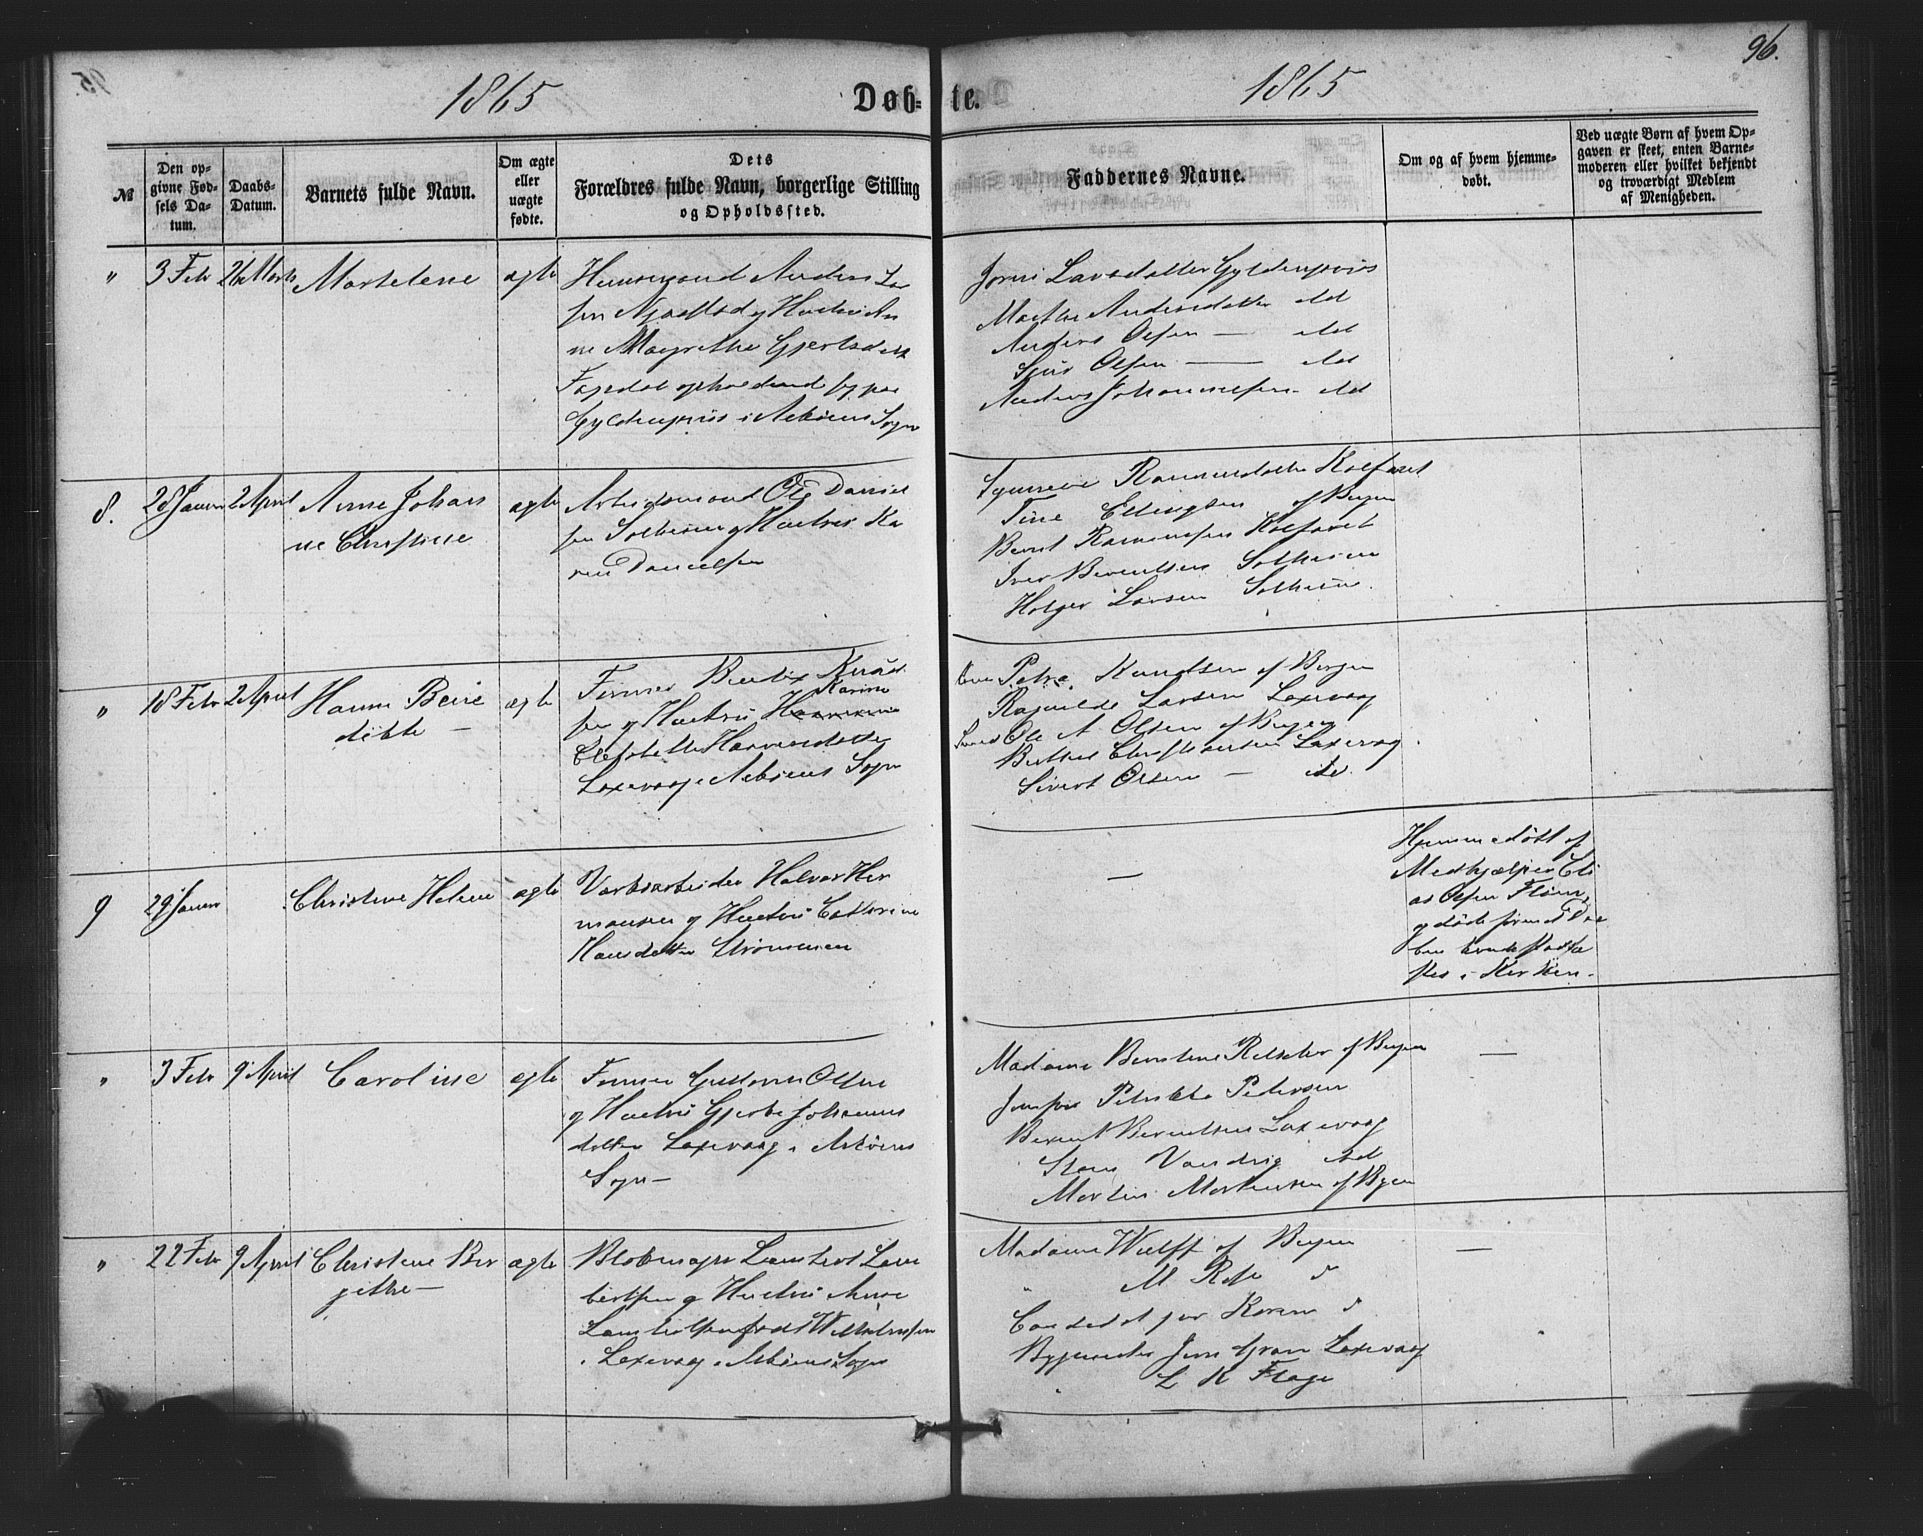 1865
Døb=
te.
1865
96.
№
Den op=
givne Fød=
sels Da=
tum.
Daabs=
Datum.
Barnets fulde Navn.
Om ægte
eller
uægte
fødte.
Dets
Forældres fulde Navn, borgerlige Stilling
og Opholdssted.
Faddernes Navne.
Om og af hvem hjemme=
døbt.
Ved uægte Børn af hvem Op=
gaven er skeet, enten Barne=
moderen eller hvilket bekjendt
og troværdigt Medlem
af Menigheden.
" 3 Febr 26 Marts Martelene ægte
Huusmand Anders La
sen og Hustru An
ne Magrethe Gjertsdatt
Gyldenpriis i Askøens Sogn
Larsdatter Gyldenpriis
Marthe Andersdatter do
Anders Olsen — do
Sjur Olsen — do
Anders Johannessen do
8. 28 Januar 2 April Anne Johan
ne Christine
ægte
Arbeidsmand Ole Daniel
sen Solheim og Hustru Ka
ren Danielsen
Synneve Rasmusdatter Kalfaret
Tine Ellingsen af Bergen
Bernt Rasmussen Kalfaret
Iver Berentsen Solheim
Holger Larsen Solheim
" 18 Febr 2 April Hanne Bene
dikte —
ægte
Tømmer Bendix Knud
Karine
sen og Hustru
Laxevaag i Askøens Sogn
Petra Knudtsen af Bergen
Ragnilde Larsen Laxevaag
Ole A Olsen af Bergen
Christiansen Laxevaag
Sivert Olsen — do.
9 29 Januar Christine Helene ægte
Værksarbeider Halvor Her
mansen og Hustru Cathrine
Hansdatter Strømmen
—
Hjemmedøbt af
Medhjælper Eli
as Olsen
og døde førend Daa
ben kunde stadfæ
stes i Kirken.
" 3 Febr 9 April Caroline ægte
Tømmer Olsen
og Hustru Gjertine Johannes
datter Laxevaag i Askøens
Sogn —
Madame af Bergen
Jomfru Petrikke Pedersen
Berent Berentsen Laxevaag
do
Martin Mortensen af Bergen
—
" 22 Febr 9 April Christine Bir
githe —
ægte
Blokmager Lambert Lam
bertsen og Hustru Anne
Lambertsen født
i Laxevaag i Askøens Sogn
Madame Wulff af Bergen
" M
Candidat
Jens Gran Laxevaag
L K Flage
—